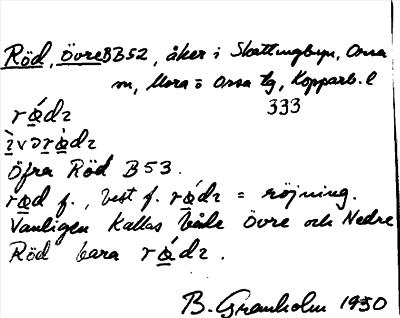 Röd, Övre BB52, åker i Skattungbyn, Orsa
m, Mora o Orsa tg, Kopparb. l
333
rǿdɿ
ìvərø̀dɿ
Öfra Röd B53.
rød f., best f. rǿdɿ = röjning.
Vanligen kallas både Övre och Nedre
Röd bara rǿdɿ.
B. Granholm 1930